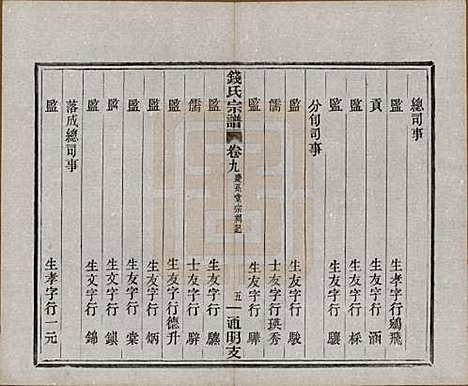 總司事
監　生孝字行鵷飛
貢　生友字行涵
監　生友字行棌
監　生友字行驤
分司事
監　生友字行駿
儒　士友字行瑛秀
監　生友字行驊
錢氏宗譜　卷九　慶系堂宗祠記　五　通明支
監　生友字行驥
儒　士友字行騂
監　生友字行德升
監　生友字行炳
監　生友字行棠
監　生文字行鎮
監　生文字行錦
落成總司事
監　生孝字行一元